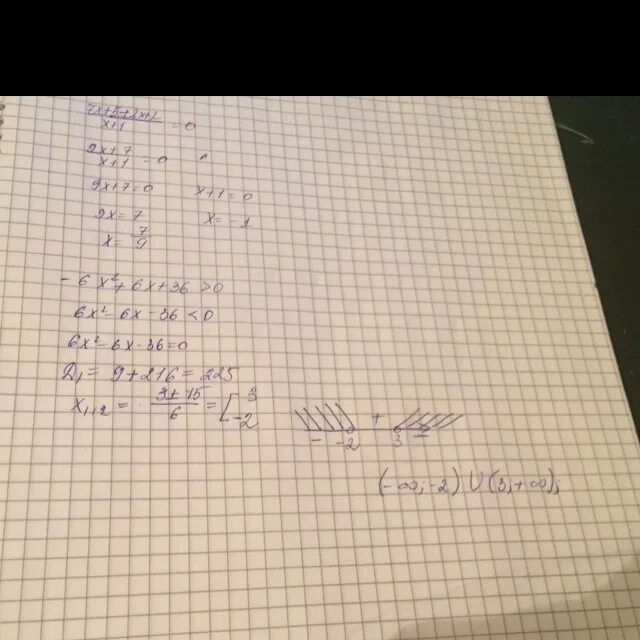 7x+5+2x+2 / x+1 = 0
9x+7 / x+1 = 0
9x+7=0 x+1=0
9x=7 x=-1
x= 7/9
-6x²+6x+36>0
6x²-6x-36<0
6x²-6x-36=0
D₁=9+216=225
x₁,₂= 3±15 / 6 = [ 3 -2
- -2 + 3 -
(-∞;-2) U (3;+∞);